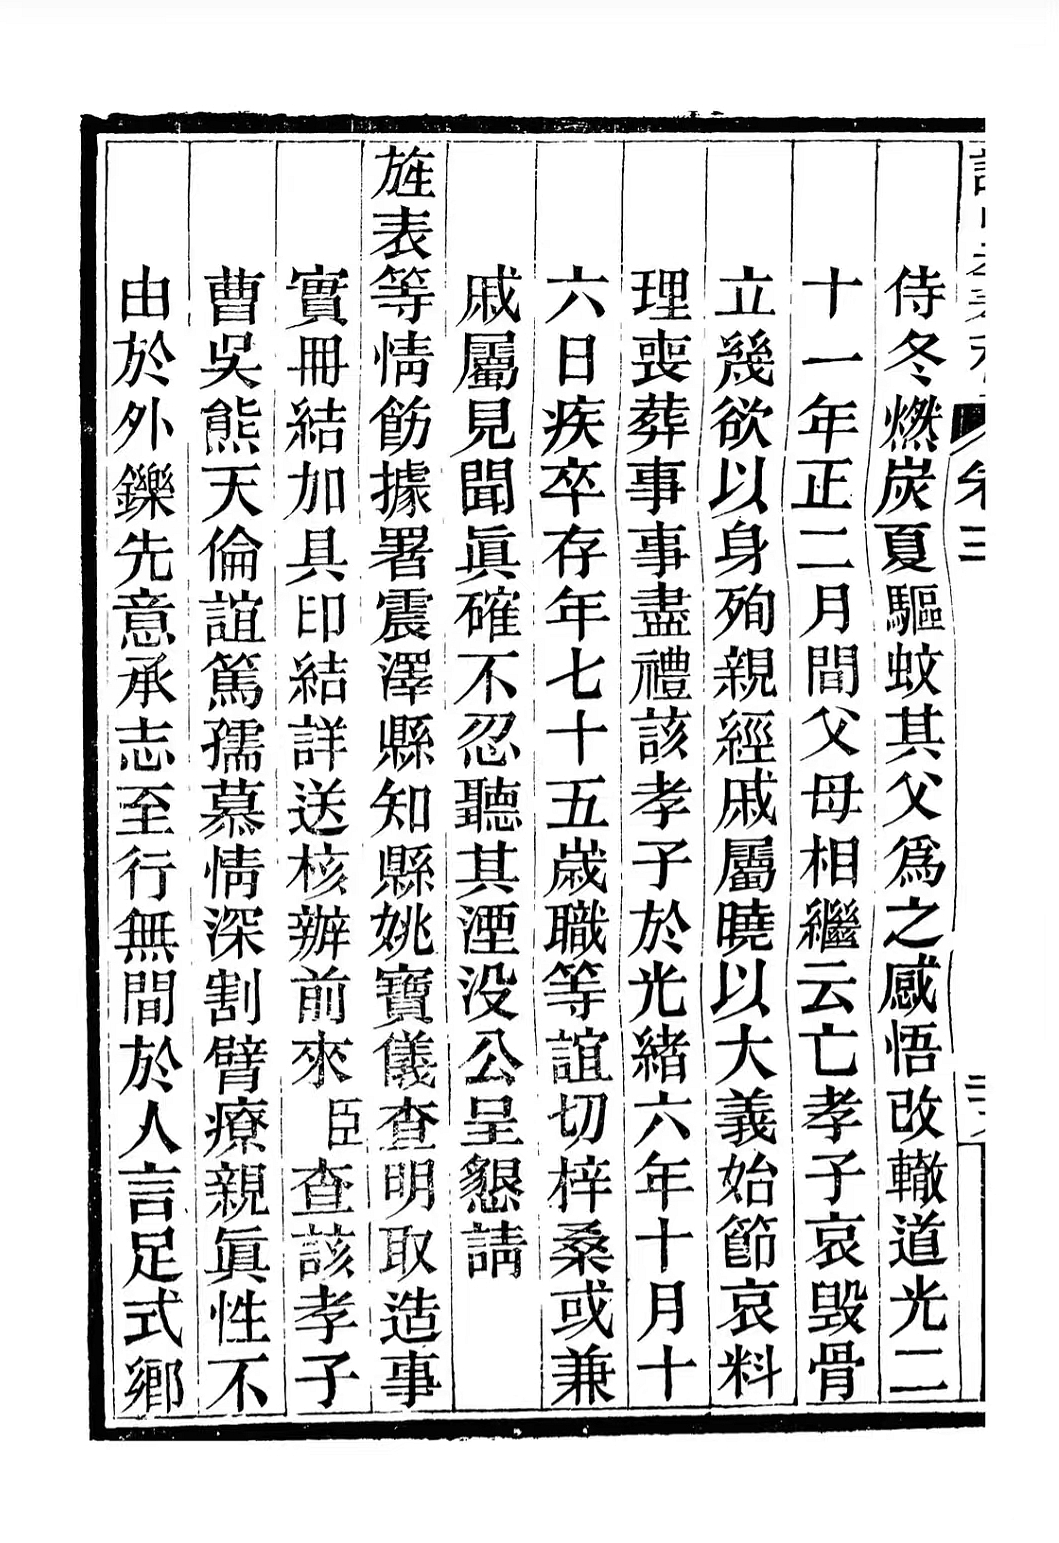 卷三
侍冬燃炭夏驅蚊其父爲之感悟改轍道光二
十一年正二月間父母相繼云亡孝子哀毀骨
立幾欲以身殉親經戚屬曉以大義始節哀料
理喪葬事事盡禮該孝子於光緒六年十月十
六日疾卒存年七十五歲職等誼切梓桑或兼
戚屬見聞眞確不忍聽其湮没公呈懇請
旌表等情飭據署震澤縣知縣姚寶儀查明取造事
實冊結加具印結詳送核辦前來臣查該孝子
曹吳熊天倫誼篤孺慕情深割臂療親眞性不
由於外鑠先意承志至行無間於人言足式鄉